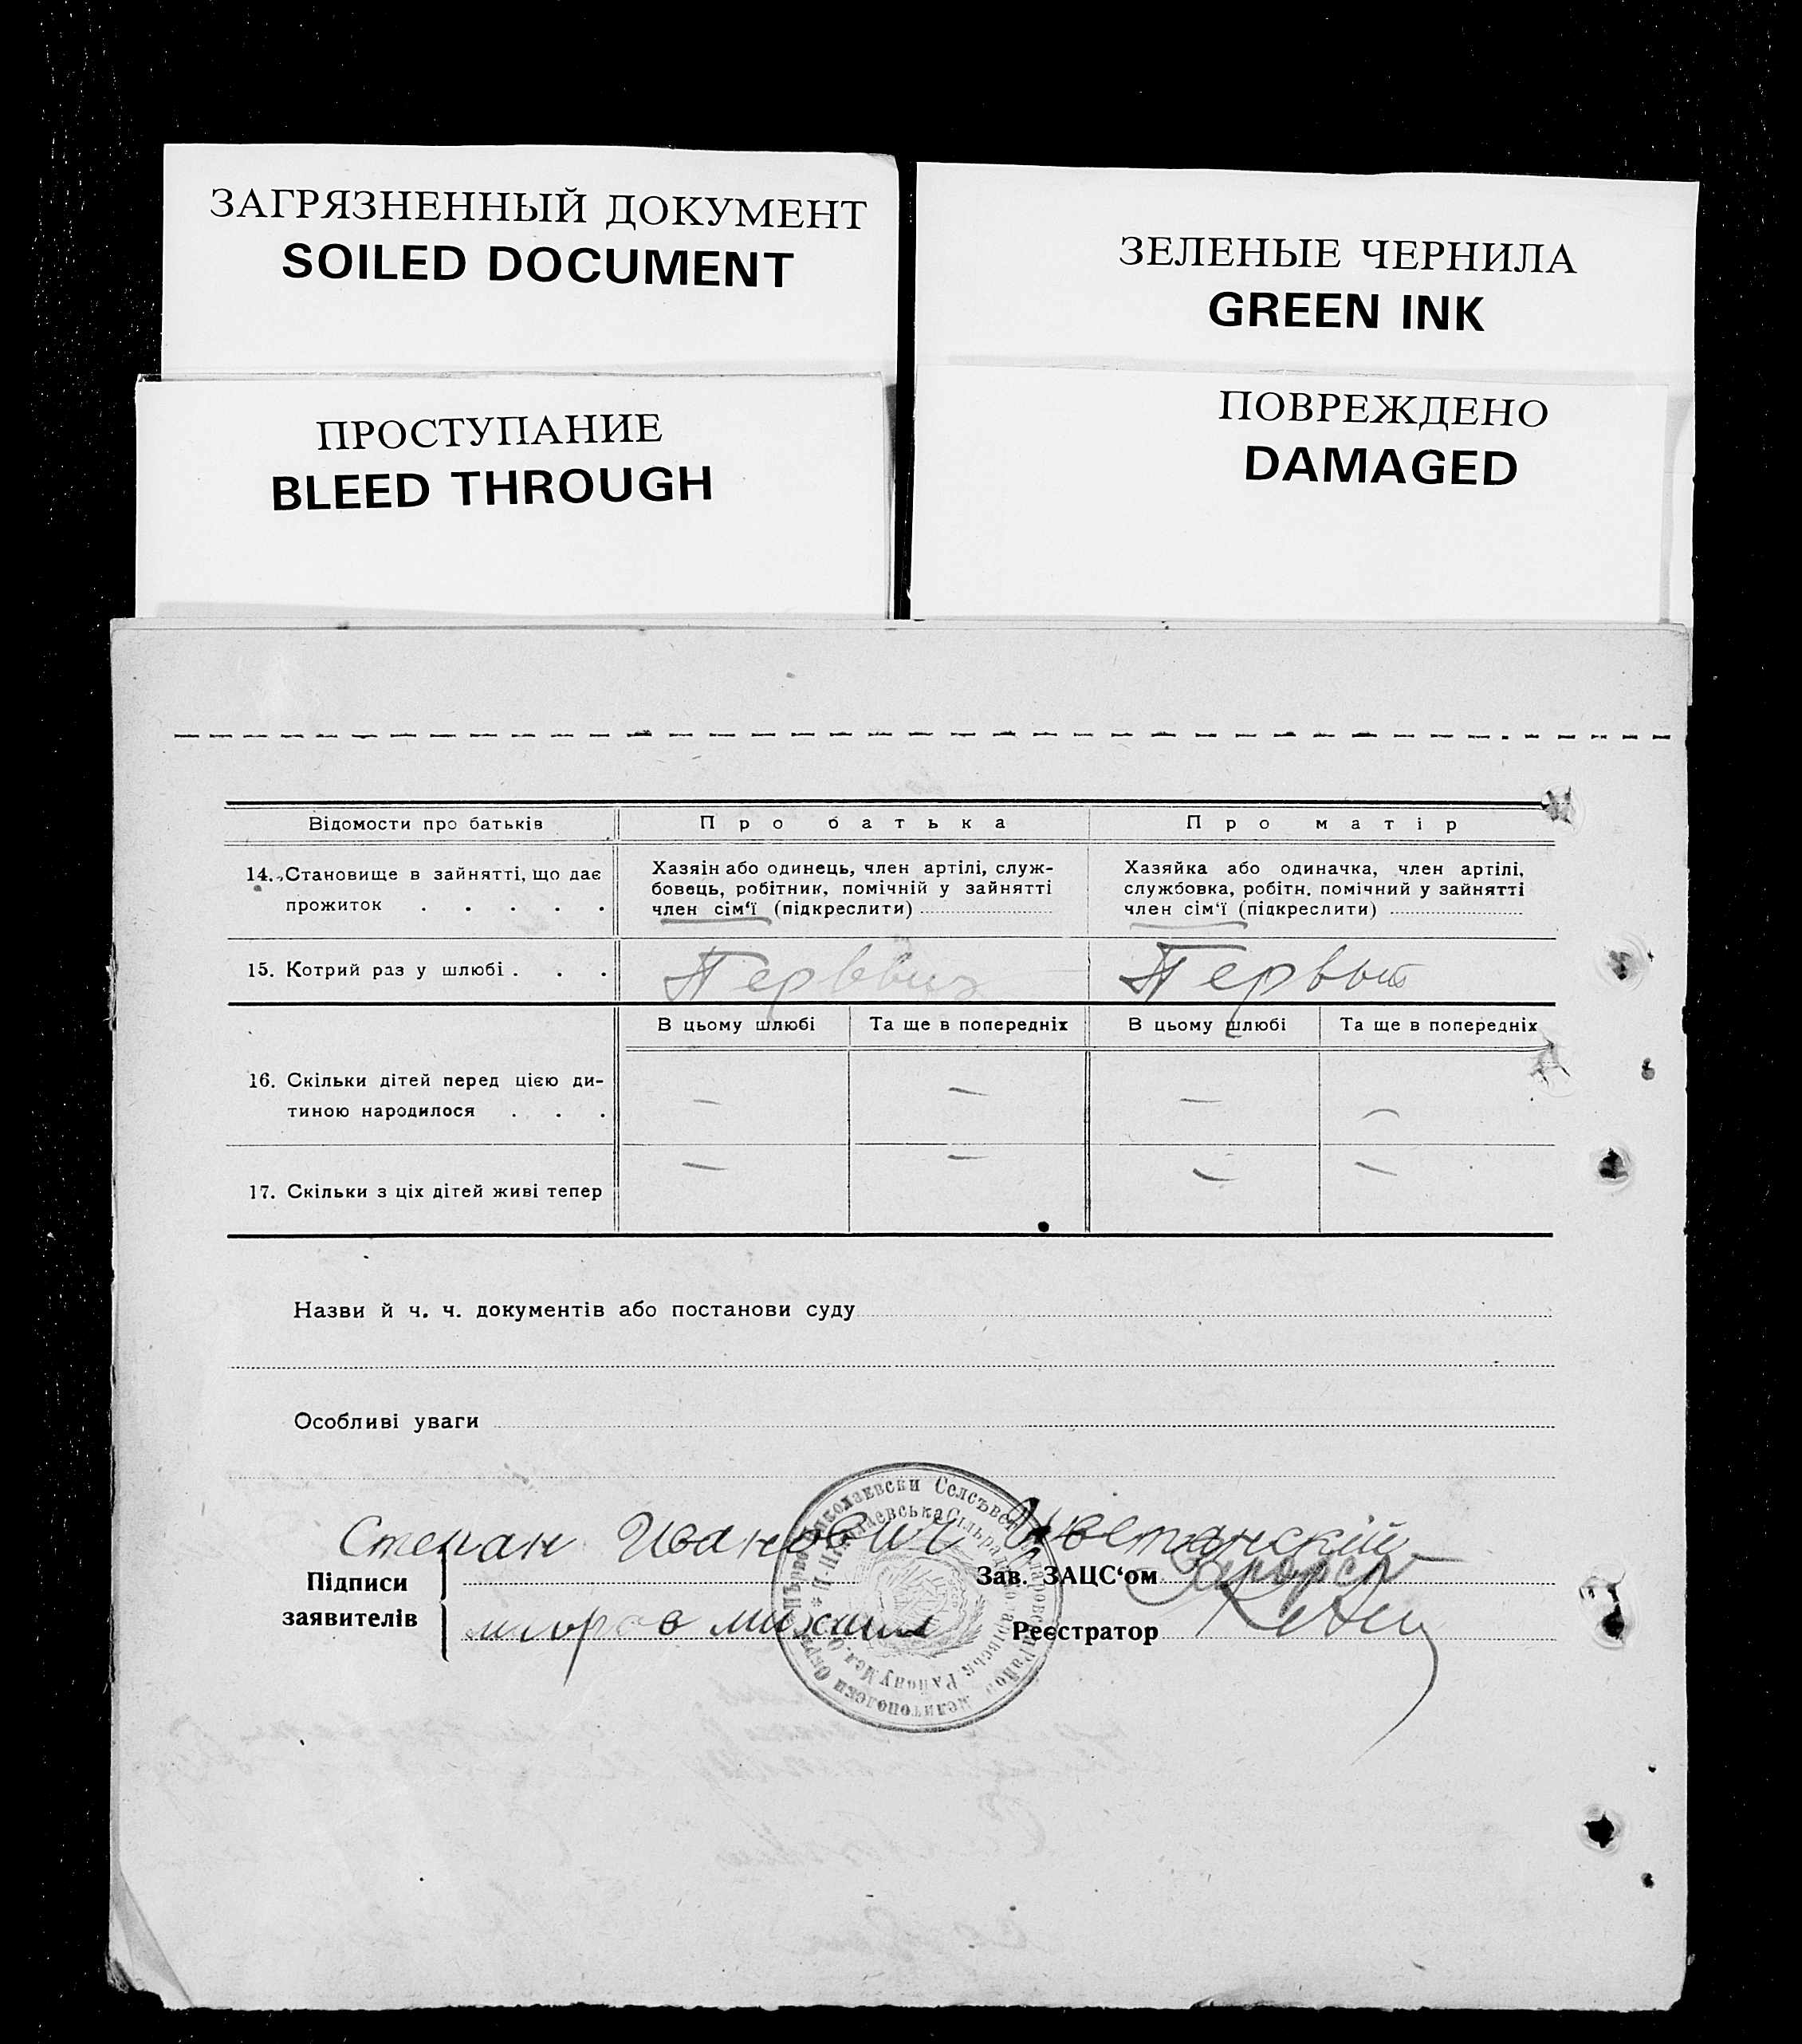 ЗАГРЯЗНЕННЫЙ ДОКУМЕНТ
SOILED DOCUMENT
ЗЕЛЕНЫЕ ЧЕРНИЛА
GREEN INK
ПРОСТУПАНИЕ
BLEED THROUGH
ПОВРЕЖДЕНО
DAMAGED
Відомости про батьків Про батька Про матір
14. Становище в зайнятті, що дає
прожиток . . . . .
Хазяін або одинець, член артілі, служ-
бовець, робітник, помічній у зайнятті
член сім‘ї (підкреслити)
Хазяйка або одиначка, член артілі,
службовка, робітн. помічний у зайнятті
член сім‘ї (підкреслити)
15. Котрий раз у шлюбі . . . Первый Первый
В цьому шлюбі Та ще в попередніх В цьому шлюбі Та ще в попередніх
16. Скільки дітей перед цією ди-
тиною народилося . . . — — — —
17. Скільки з ціх дітей живі тепер — — — —
Назви й ч. ч. документів або постанови суду
Особливі уваги
Степан Иванович
Підписи
заявителів
Зав. ЗАЦС‘ом
михаил
Реєстратор